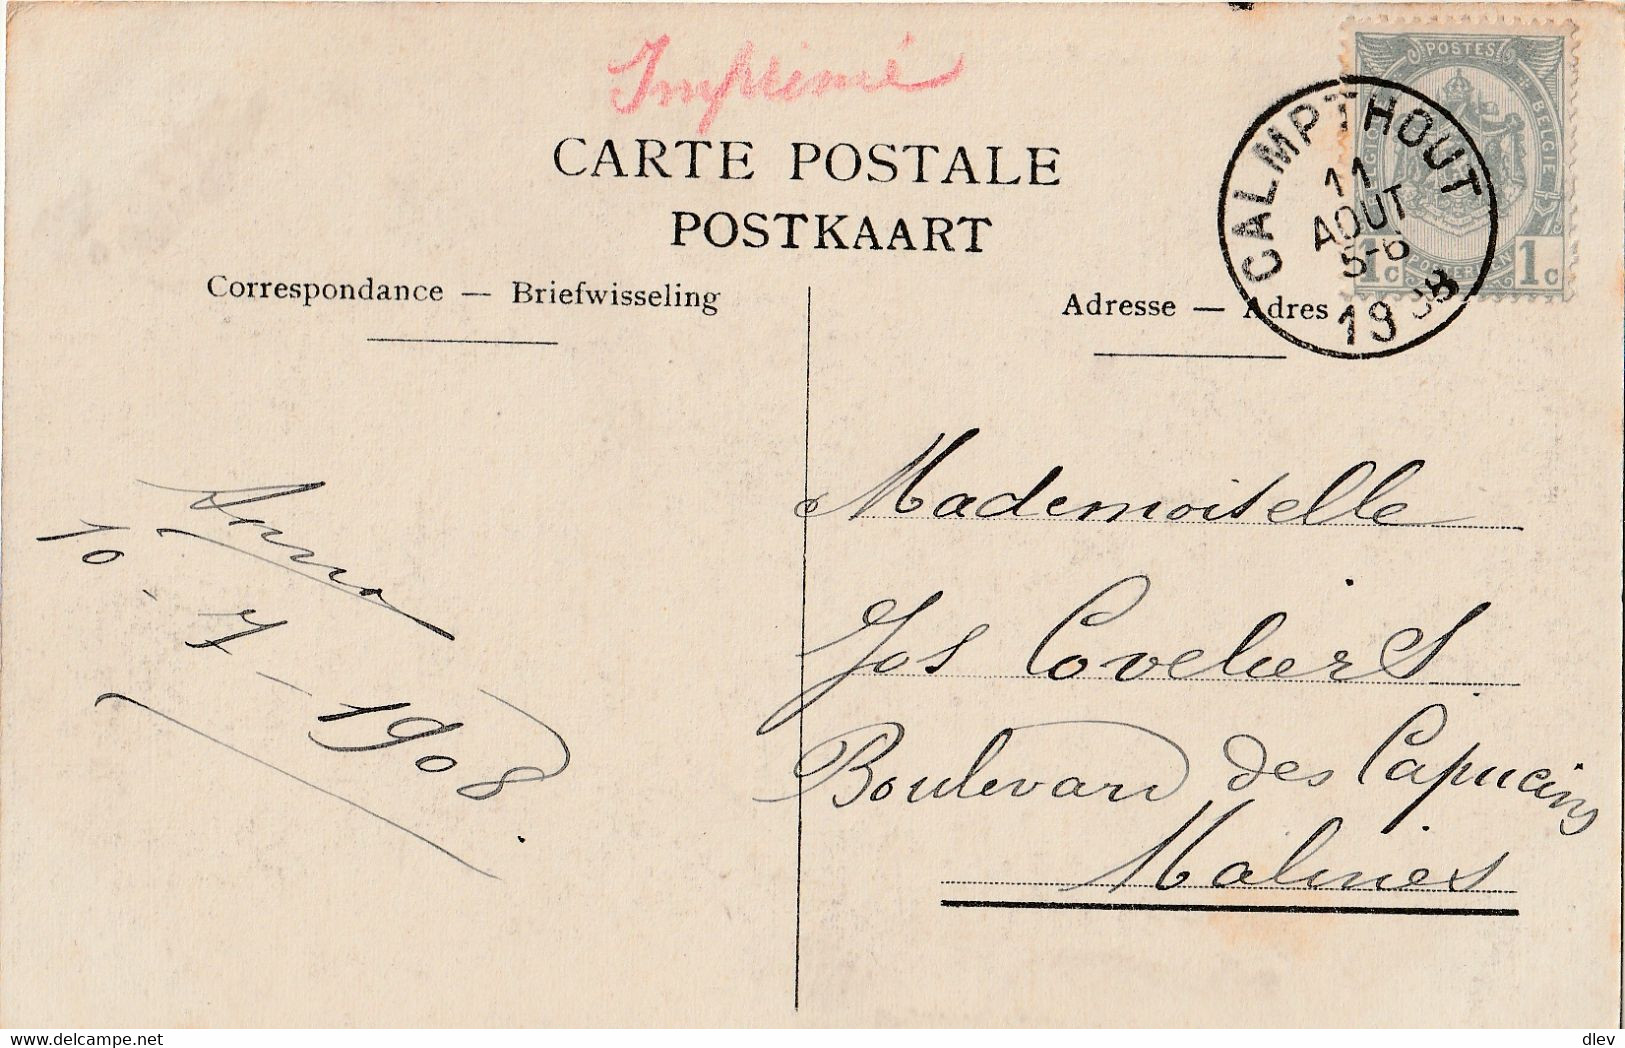 Imprimé
CARTE POSTALE
POSTKAART
Correspondance — Briefwisseling
Adresse — Adres
POSTES
BELGIE
1c 1c
CALMPTHOUT
11
AOUT
5-6
1908
Anna
10 - 7 - 1908.
Mademoiselle
Jos Coveliers
Boulevard des Capucins
Malines
delcampe.net
dlev